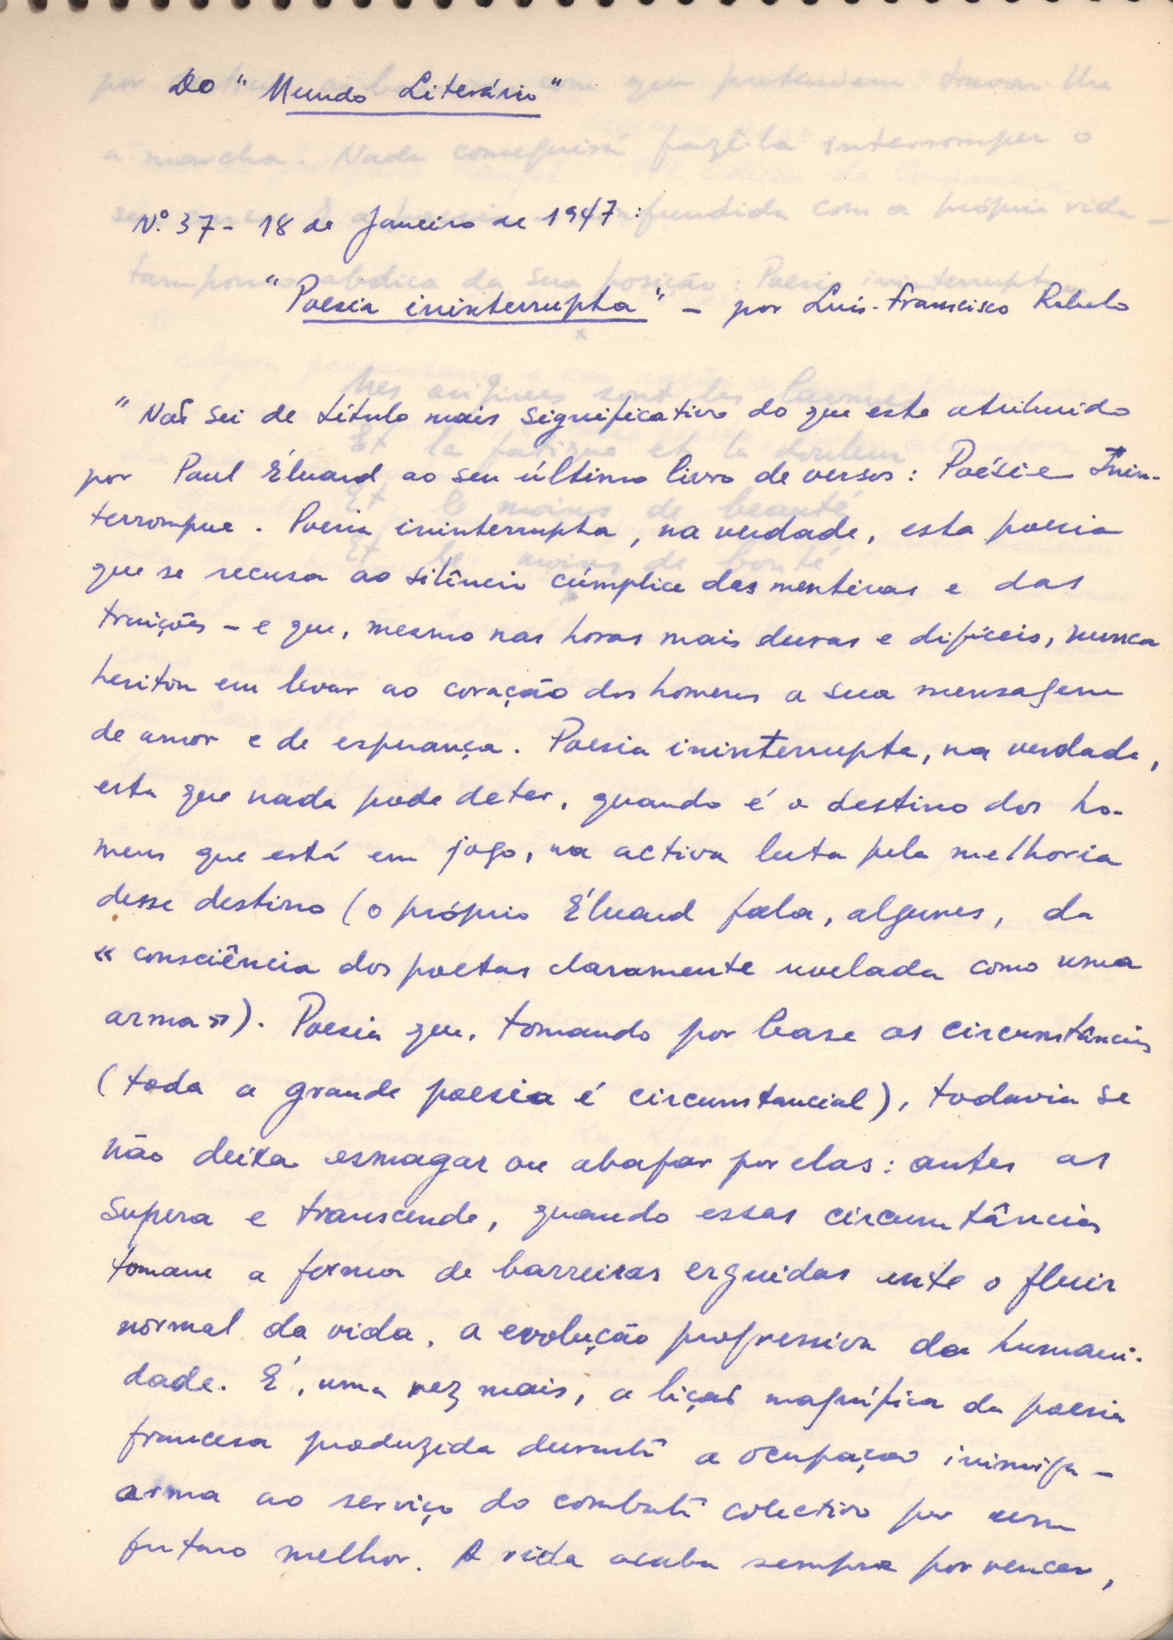 Do "Mundo Literário"
Nº 37 - 18 de Janeiro de 1947:
"Poesia ininterrupta" - por Luís-Francisco Rebelo
"Não sei de título mais significativo do que este atribuido
por Paul Éluard ao seu último livro de versos: Poésie Inin-
terrompue. Poesia ininterrupta, na verdade, esta poesia
que se recusa ao silêncio cúmplice das mentiras e das
traições - e que, mesmo nas horas mais duras e difíceis, nunca
hesitou em levar ao coração dos homens a sua mensagem
de amor e de esperança. Poesia ininterrupta, na verdade,
esta que nada pode deter, quando é o destino dos ho-
mens que está em jogo, na activa luta pela melhoria
desse destino (o próprio Éluard fala, algures, da
«consciência dos poetas claramente revelada como uma
arma»). Poesia que, tomando por base as circunstâncias
(toda a grande poesia é circunstancial), todavia se
não deixa esmagar ou abafar por elas: antes as
supera e transcende, quando essas circunstâncias
tomam a forma de barreiras erguidas ente o fluir
normal da vida, a evolução progressiva da humani-
dade. É, uma vez mais, a lição magnífica da poesia
francesa produzida durante a ocupação inimiga -
arma ao serviço do combate colectivo por um
futuro melhor. A vida acaba sempre por vencer,